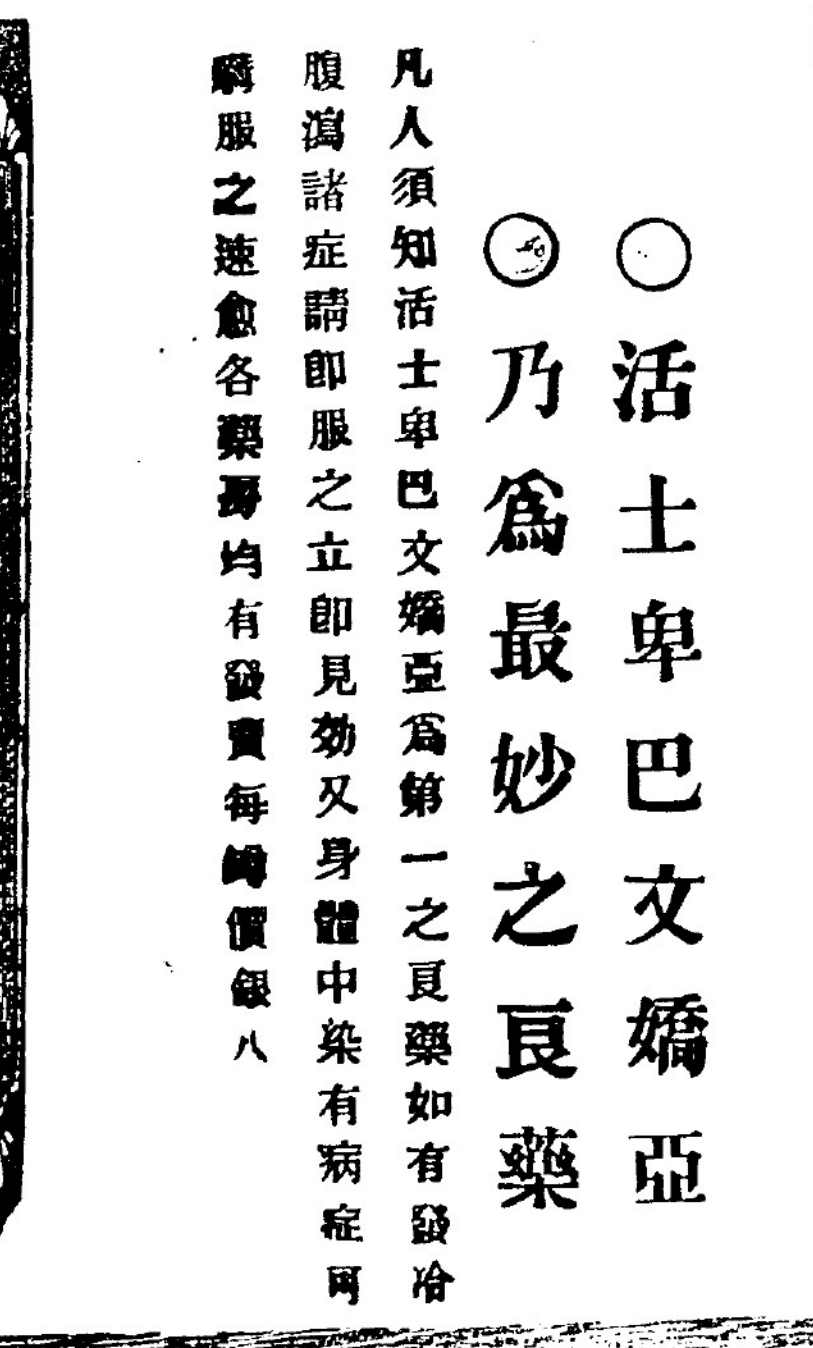 ○活士卑巴文嬌亞
○乃爲最妙之良藥
凡人須知活士卑巴文嬌亞爲第一之良藥如有發冷
腹瀉諸症請即服之立即見効又身體中染有病症可
服之速愈各藥房均有發賣每罇價銀八